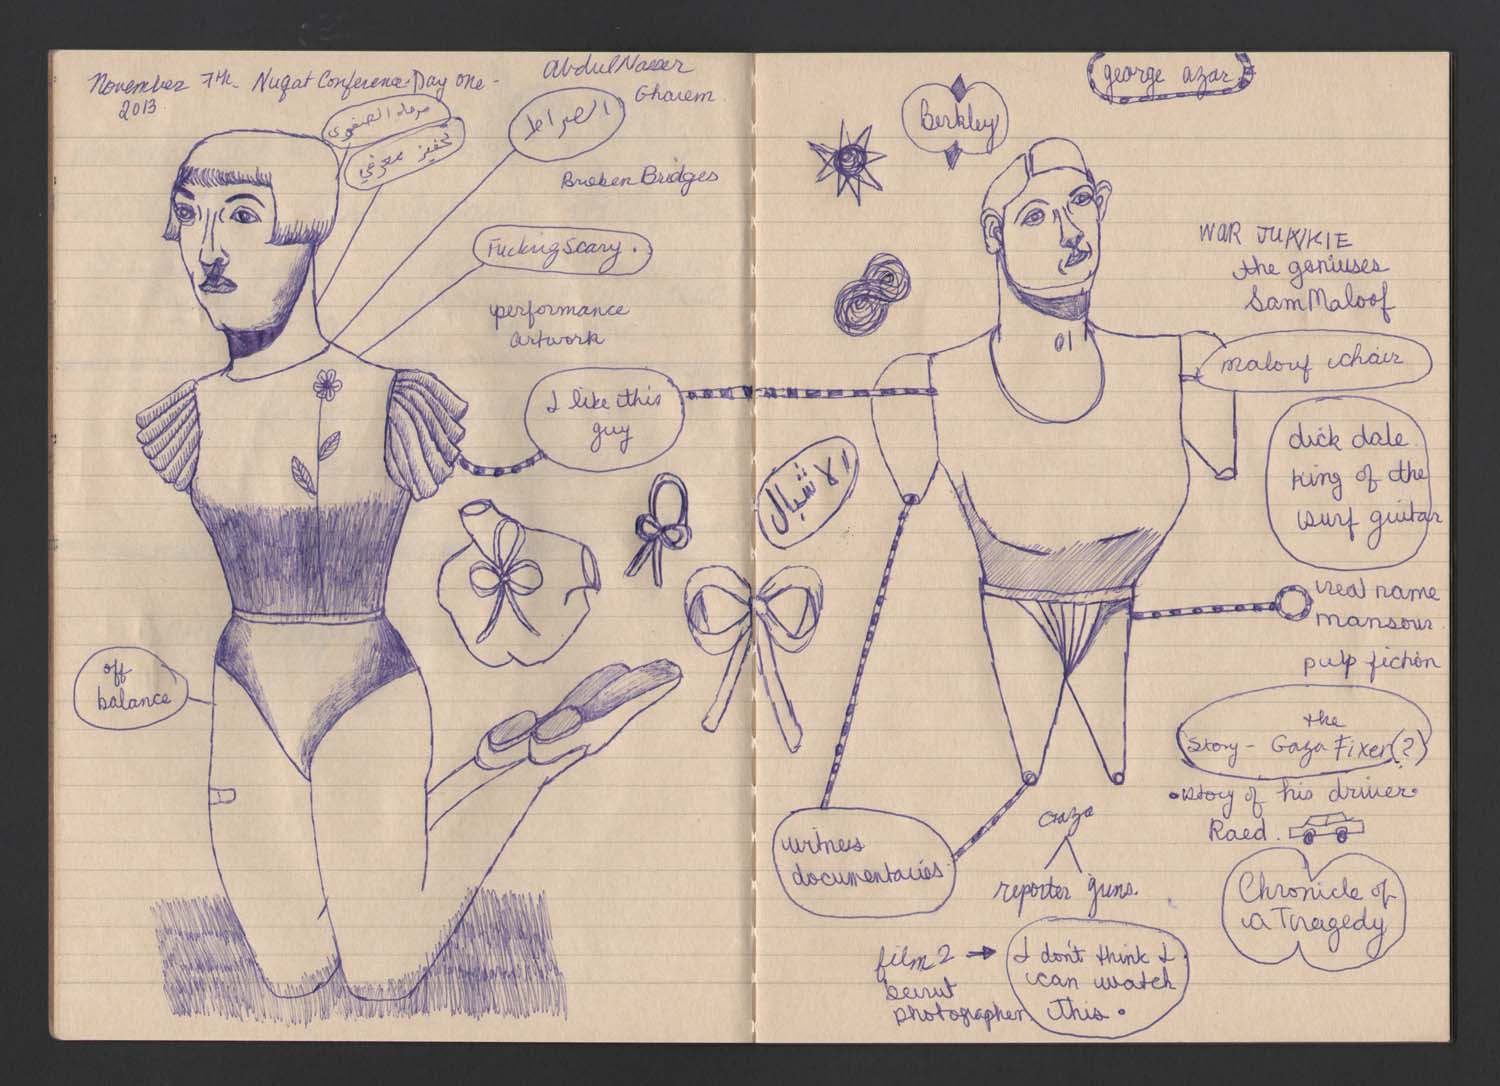 November 7th. Nuqat Conference Day one -
2013.
AbdulNasser
Gharem.
تحفيز معرفي
الصراط
Broken Bridges
Fucking Scary.
performance
artwork
I like this
guy
off
balance
george azar
Berkley
WAR JUNKIE
the geniuses
Sam Maloof
malouf chair
dick dale
king of the
surf guitar
الاشبال
real name
mansour.
pulp fiction
the
Story - Gaza Fixer(?)
• story of his driver •
Raed.
witness
documentaries
Gaza
reporter guns.
Chronicle of
a Tragedy
film 2 →
beirut
photographer.
I don't think I
can watch
this.